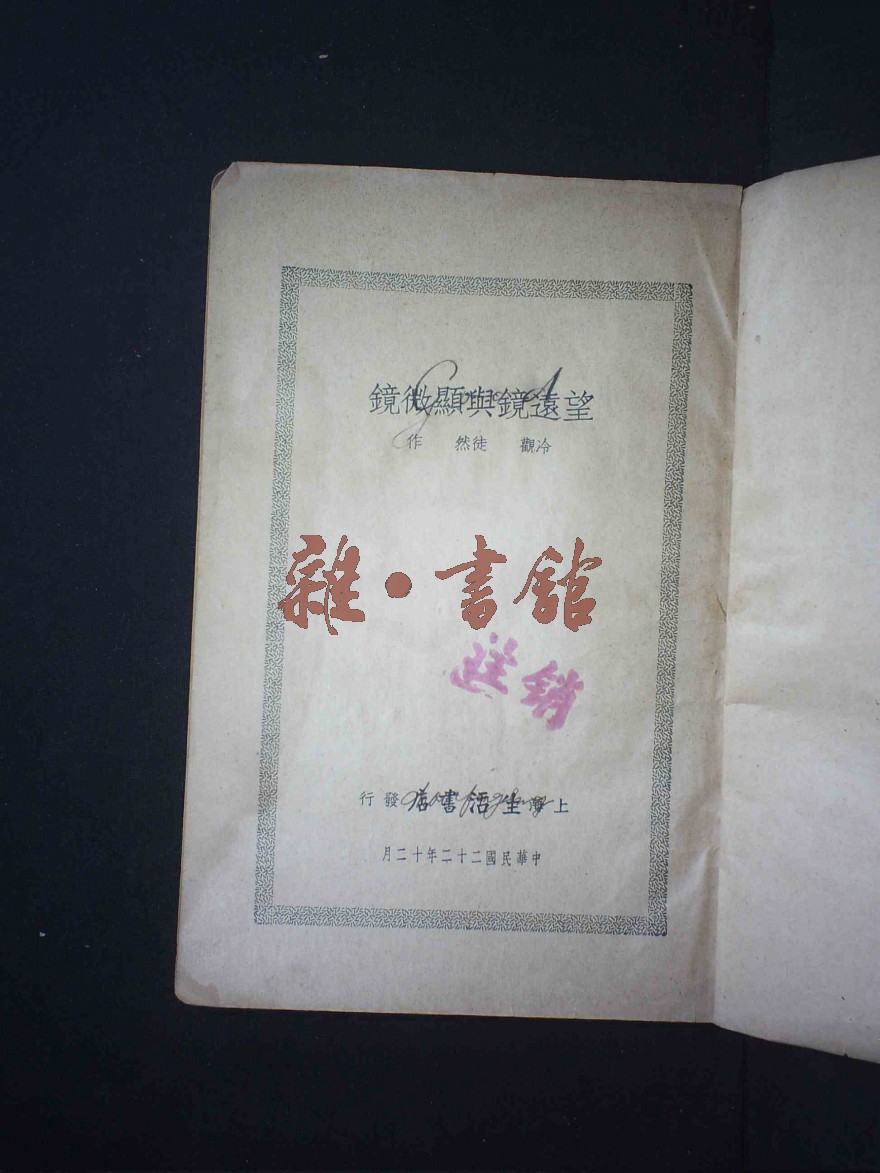 望遠鏡與顯微鏡
冷觀 徒然 作
雜·書館
註銷
上海生活書店發行
中華民國二十二年十二月